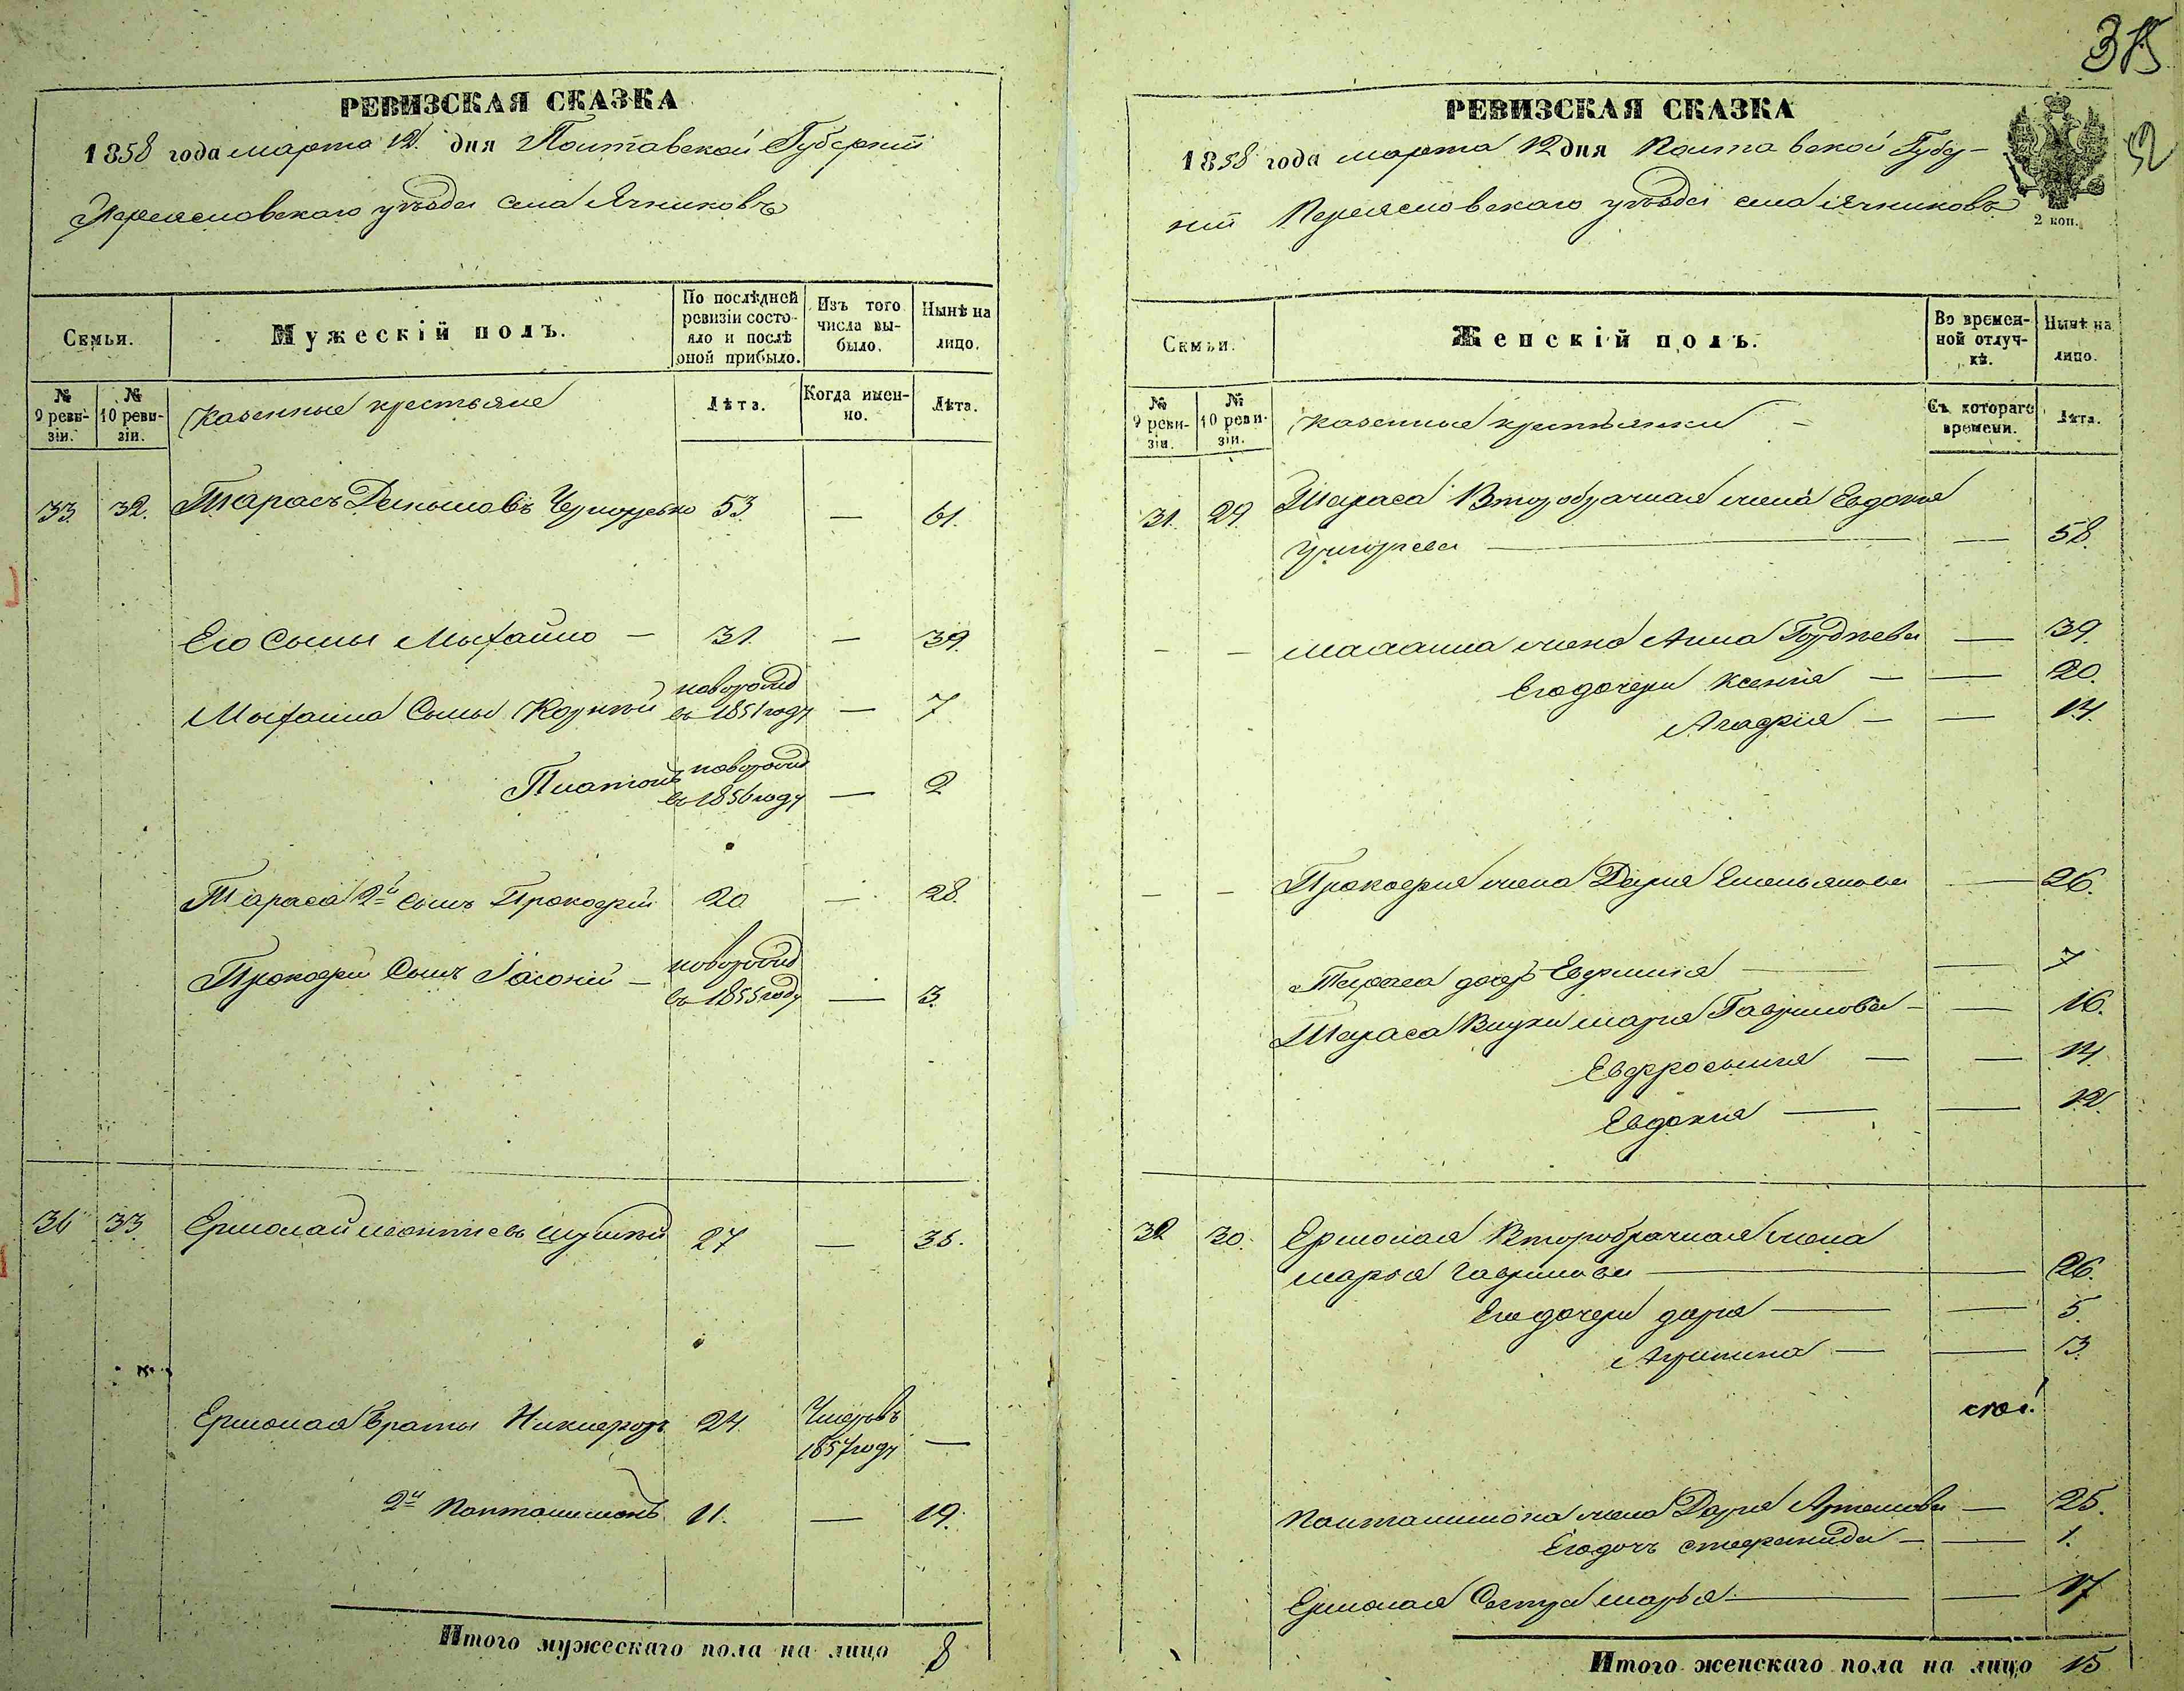 315
52
РЕВИЗСКАЯ СКАЗКА
1858 года марта 12. дня Полтавской Губернии
Переяславского уѣзда села Ячниковъ
Семьи.
Мужескій полъ.
По послѣдней ревизіи состояло и послѣ оной прибыло.
Изъ того числа выбыло.
Нынѣ на лицо.
№ 9 ревизіи.
№ 10 ревизіи.
Казенные крестьяне
Лѣта.
Когда именно.
Лѣта.
33. 32. Тарасъ Демьяновъ 53 — 61.
Его Сыны Михайло — 31. — 39.
Михайла Сыны Корнѣй новорожд въ 1851 году — 7
Платонъ новорожд въ 1856 году — 2
Тараса 2й сынъ Прокофій 20 — 28.
Прокофія Сынъ Іасоній — новорожд въ 1855 году — 3.
33. Ермолай Леонтіевъ 27 — 35.
Ермолая Браты Никифоръ 24. Умеръ въ 1857 году —
2й Пантолимонъ 11. — 19.
Итого мужескаго пола на лицо 8
РЕВИЗСКАЯ СКАЗКА
1858 года марта 12 дня Полтавской Губер-
ніи Переяславского уѣзда села Ячниковъ
2 коп.
Семьи.
Женскій полъ.
Во временной отлучкѣ.
Нынѣ на лицо.
№ 9 ревизіи.
№ 10 ревизіи.
Казенные крестьянки —
Съ котораго времени.
Лѣта.
31. 29. Тараса Второбрачная жена Евдокія
Григорьева — — 58.
— — Михайла жена Анна Гордѣева — 39.
Его дочери Ксенія — — 20.
Агафія — — 14.
— — Прокофія жена Дарія Емельянова — 26.
дочь Евфимія — — 7
Тараса Внуки Марія Гаврилова — — 16.
Евфросинія — — 14.
Евдокія — — 12.
32 30. Ермолая Второбрачная жена
Марья Гаврилова — — 26.
Его дочери Дарія — — 5.
Акулина — — 3.
Пантолимона жена Дарія Артемова — 25.
Его дочь Стефанида — — 1.
Ермолая Сестра Марья — — 17
Итого женскаго пола на лицо 15